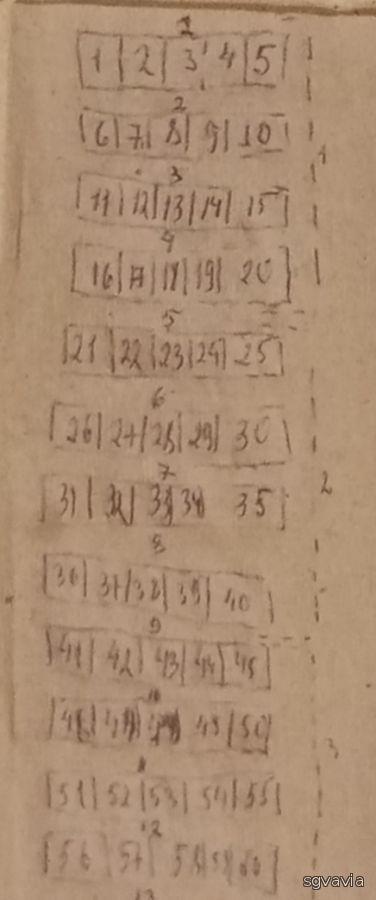 1
1 2 3 4 5
2
6 7 8 9 10
3
11 12 13 14 15
1
4
16 17 18 19 20
5
21 22 23 24 25
6
26 27 28 29 30
7
31 32 33 34 35
2
8
36 37 38 39 40
9
41 42 43 44 45
10
49 50
3
11
51 52 53 54 55
12
56 57 58 59 60
13
sgvavia